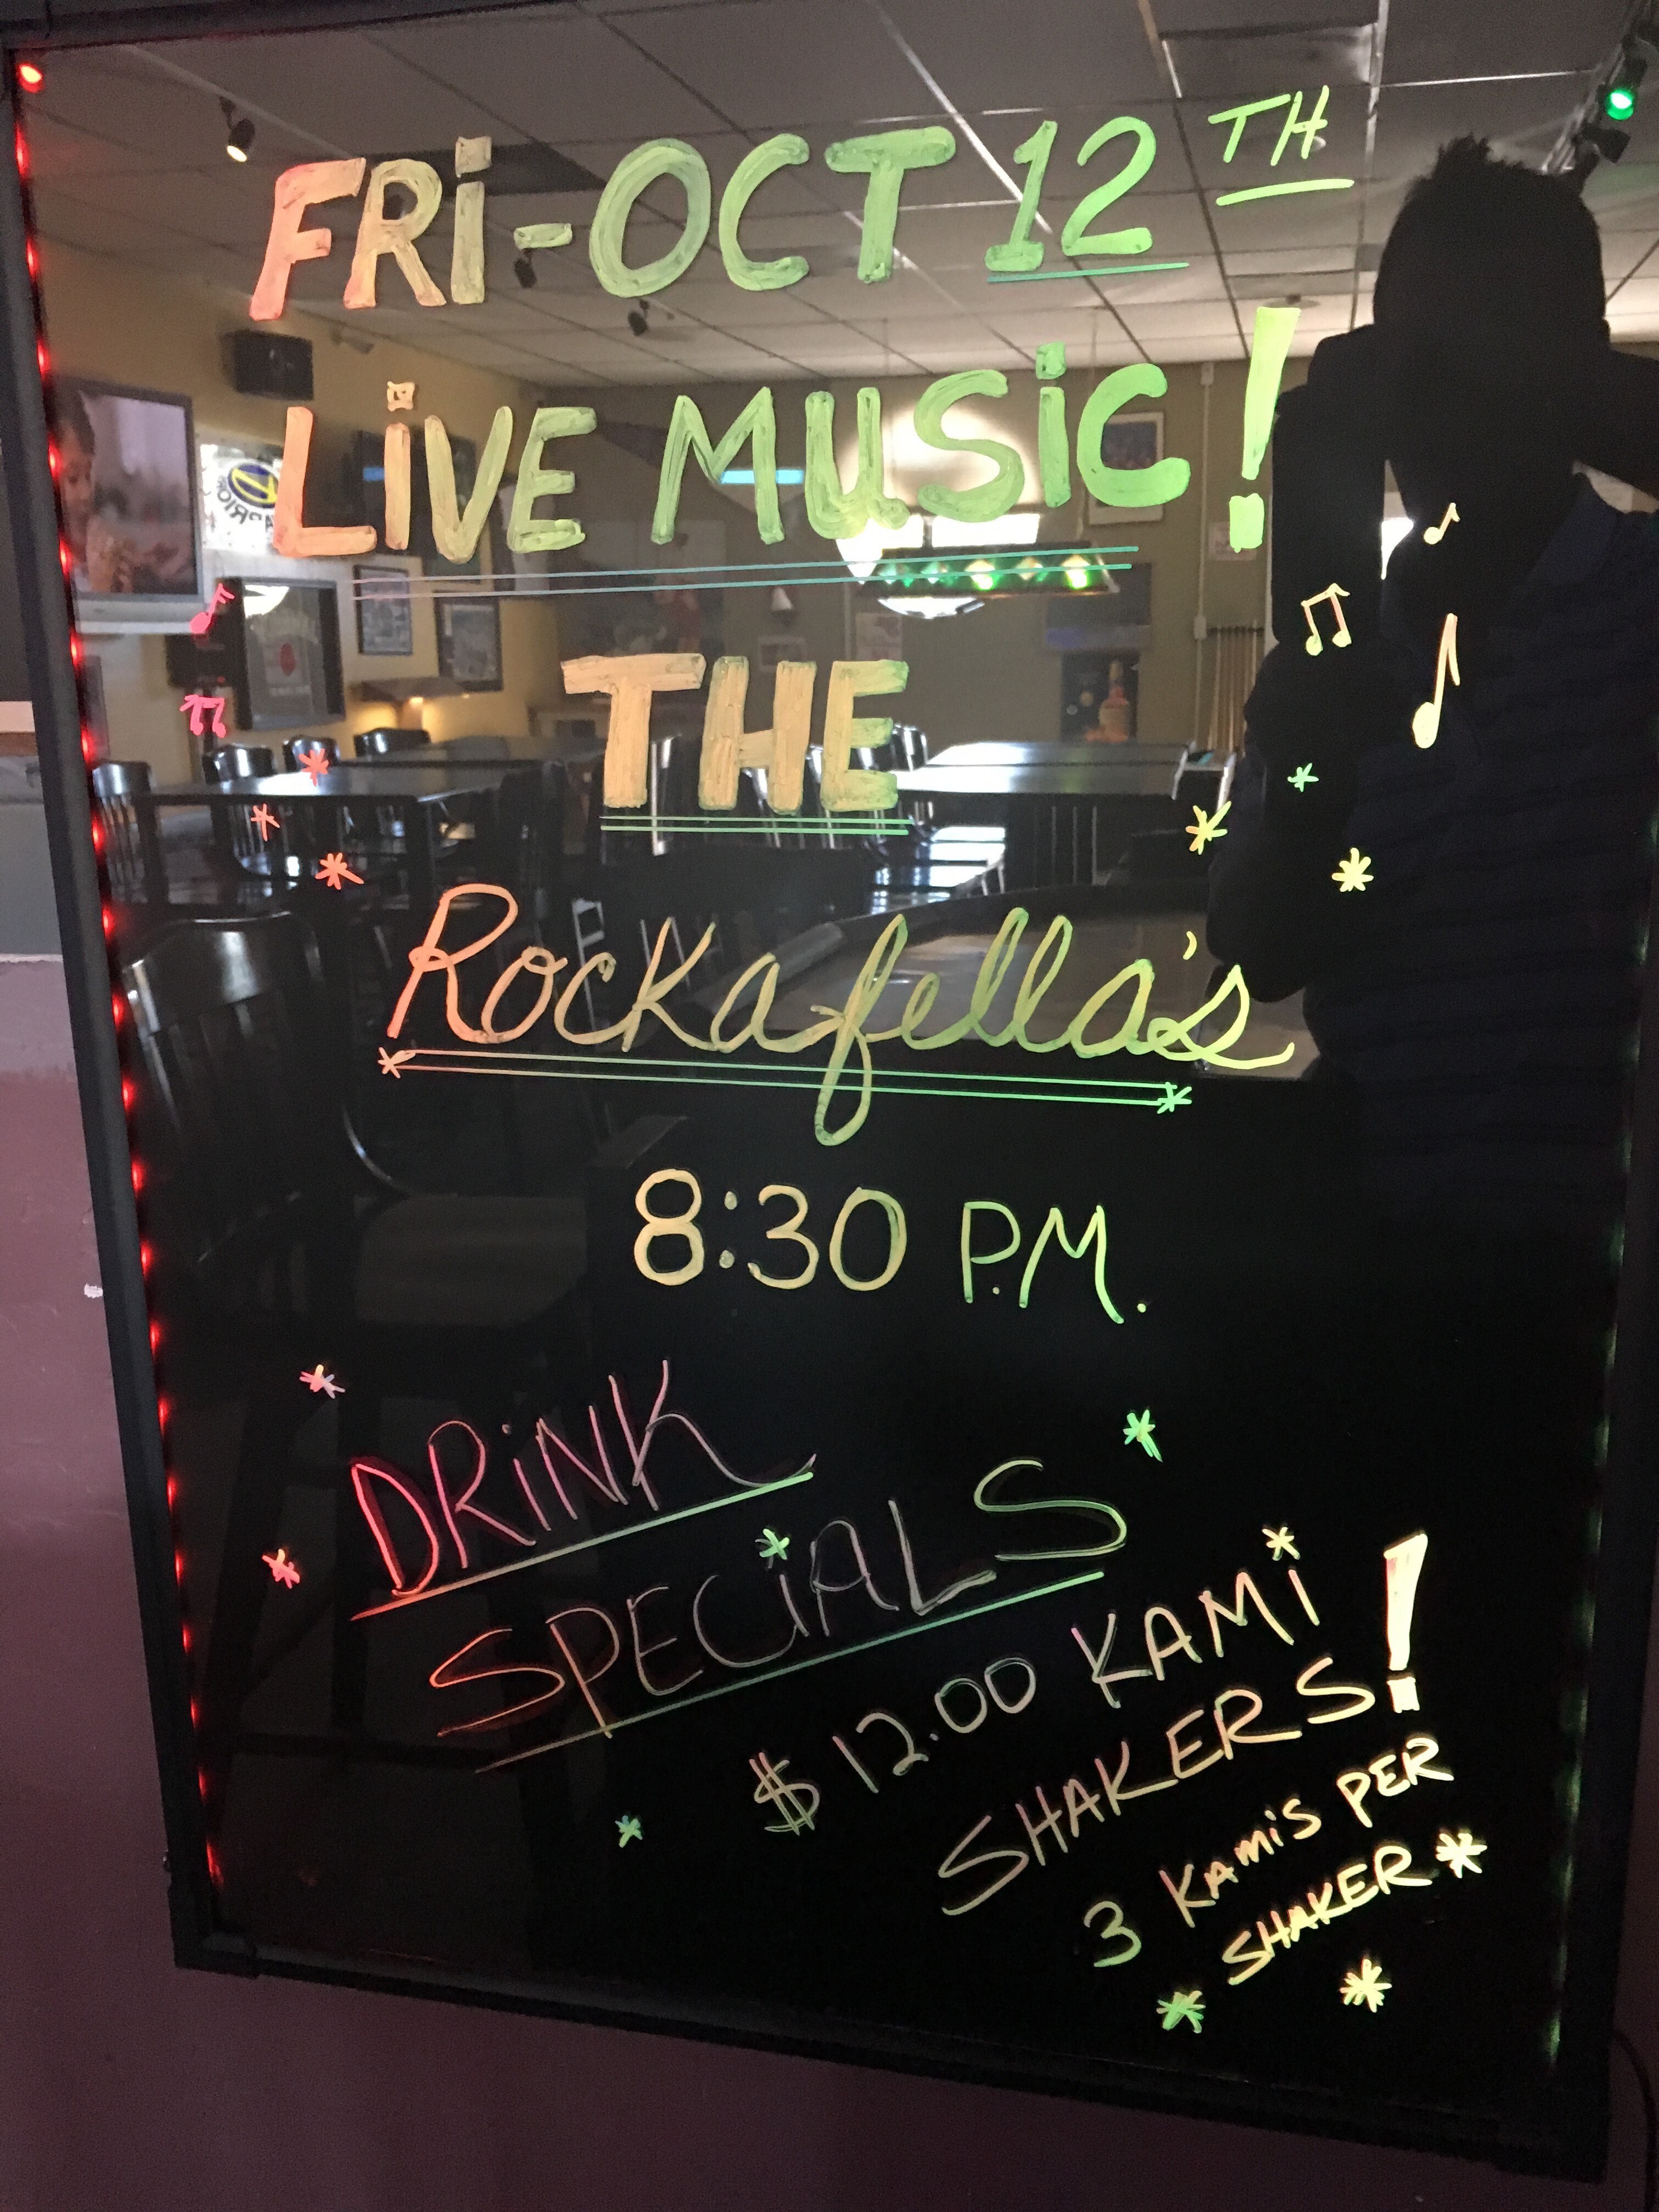 FRi-OCT 12TH
LiVE MUSiC!
THE
Rockafella's
8:30 P.M.
DRiNK
SPECiALS
$12.00 KAMi
SHAKERS!
3 KAMi's PER
SHAKER